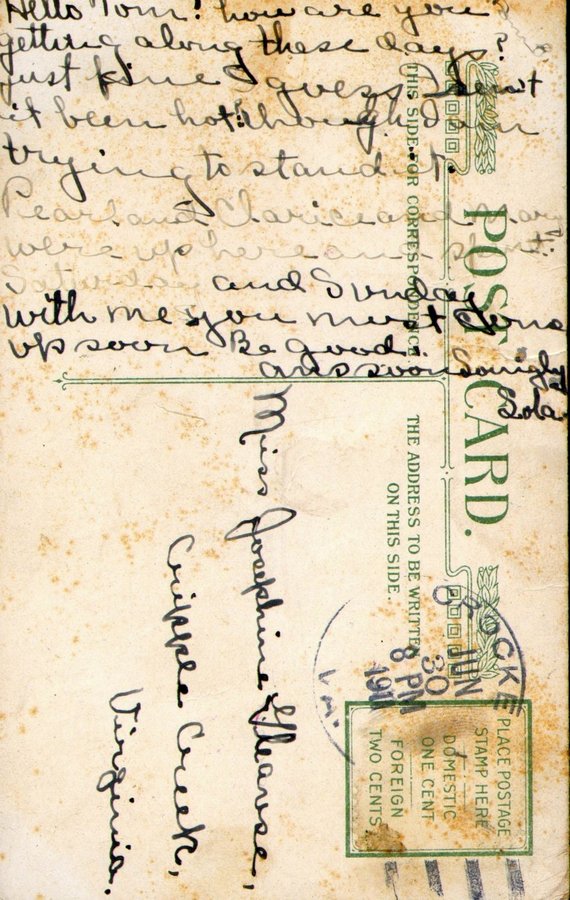 Hello Tom! how are you
getting along these days?
Just fine I guess. Hasn't
it been hot though I am
trying to stand it.
Pearl and Clarice and Mary
were up here and spent
Saturday and Sunday
with me you must come
up soon Be good.
ans soon
Lola
POST CARD.
THIS SIDE FOR CORRESPONDENCE
THE ADDRESS TO BE WRITTEN
ON THIS SIDE.
Miss Josephine
Cripple Creek,
Virginia.
JUN
30
8 PM
1911
PLACE POSTAGE
STAMP HERE
DOMESTIC
ONE CENT
FOREIGN
TWO CENTS